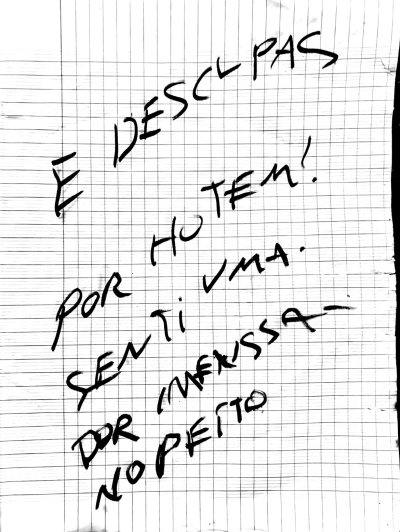 E DESCULPAS
POR HOTEM!
SENTI UMA.
DOR IMENSSA-
NO PEITO